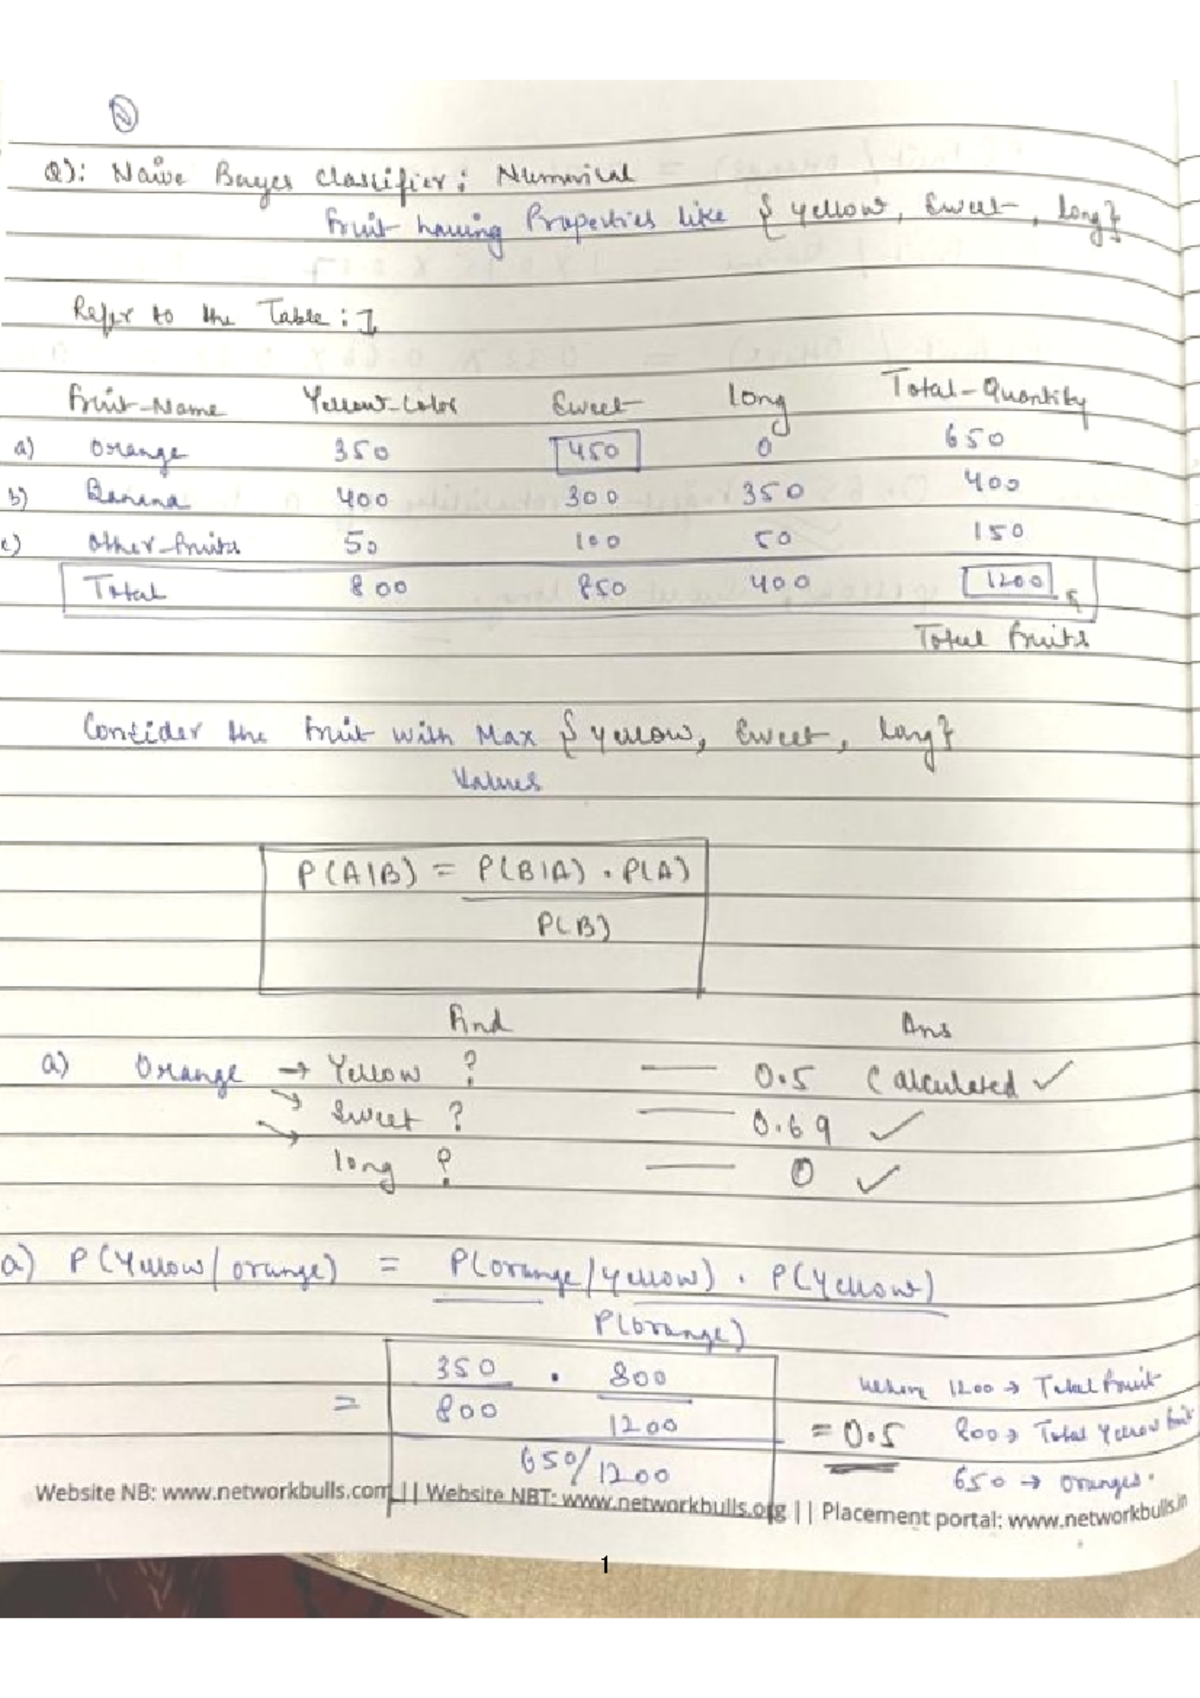 Q): Naive Bayes Classifier: Numerical
Fruit having Properties like { Yellow, Sweet, long}
Refer to the Table:
Fruit-Name Yellow-Color Sweet long Total-Quantity
a) Orange 350 450 0 650
b) Banana 400 300 350 400
c) Other-fruits 50 100 50 150
Total 800 850 400 1200
Total fruits
Consider the fruit with Max { yellow, Sweet, long}
Values
P(A|B) = P(B|A) . P(A)
P(B)
Find Ans
a) Orange → Yellow ? — 0.5 Calculated ✓
→ Sweet ? — 0.69 ✓
→ long ? — 0 ✓
a) P(Yellow/orange) = P(orange/yellow) . P(Yellow)
P(orange)
= 350 . 800 where 1200 → Total fruit
800 1200 = 0.5 800 → Total Yellow fruit
650/1200 650 → Oranges.
Website NB: www.networkbulls.com || Website NBT: www.networkbulls.org || Placement portal: www.networkbulls.in
1